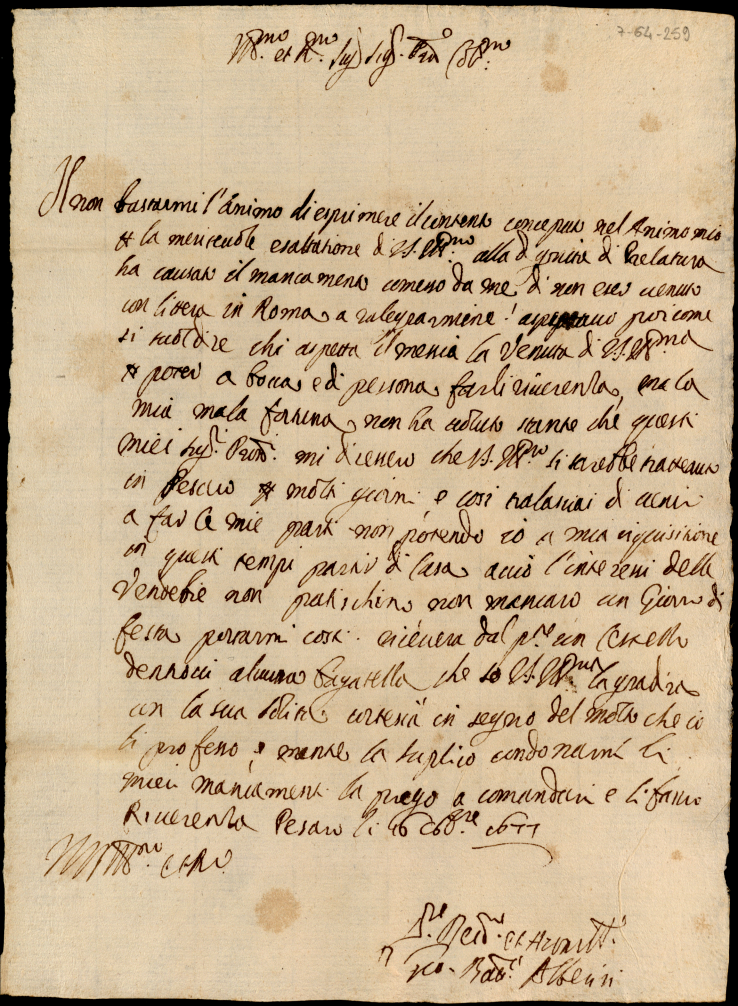 7-64-259
Ill.mo et R.mo Sig.r Sig.r P.ron Col.mo
Il non bastarmi l'animo di esprimere il contento conceputo nel Animo mio
la meriteuole esaltatione di V.S. Ill.ma alla dignità di Prelatura
ha causato il mancamento comesso da me di non eser uenuto
con littera in Roma a ralegrarmene! aspetauo poi come
si suol dire chi aspetta il messia la Venuta di V.S. Ill.ma
poter a bocca e di persona farli riuerenza, ma la
mia mala fortuna non ha uoluto stante che questi
miei Sig.ri Pron.i mi dissero che V.S. Ill.ma si sarebbe trattenuta
in Pesaro molti giorni e cosi tralasciai di uenir
a far le mie parti non potendo io a mia riquisitione
in questi tempi partir di Casa acciò l'interessi delle
Vendemie non patischino non mancaro un Giorno di
festa portarmi costi. riceuera dal p.nte un Cestello
dentroui alcuna bagatella che so V.S. Ill.ma la gradira
con la sua solita cortesia in segno del molto che io
li professo, mentre la suplico condonarmi li
miei mancamenti la prego a comandarmi e li faccio
Riuerenza Pesaro li 16 Ott.bre 1677
V.S. Ill.ma et R.ma
Ser.re Deu.mo et
Albeini